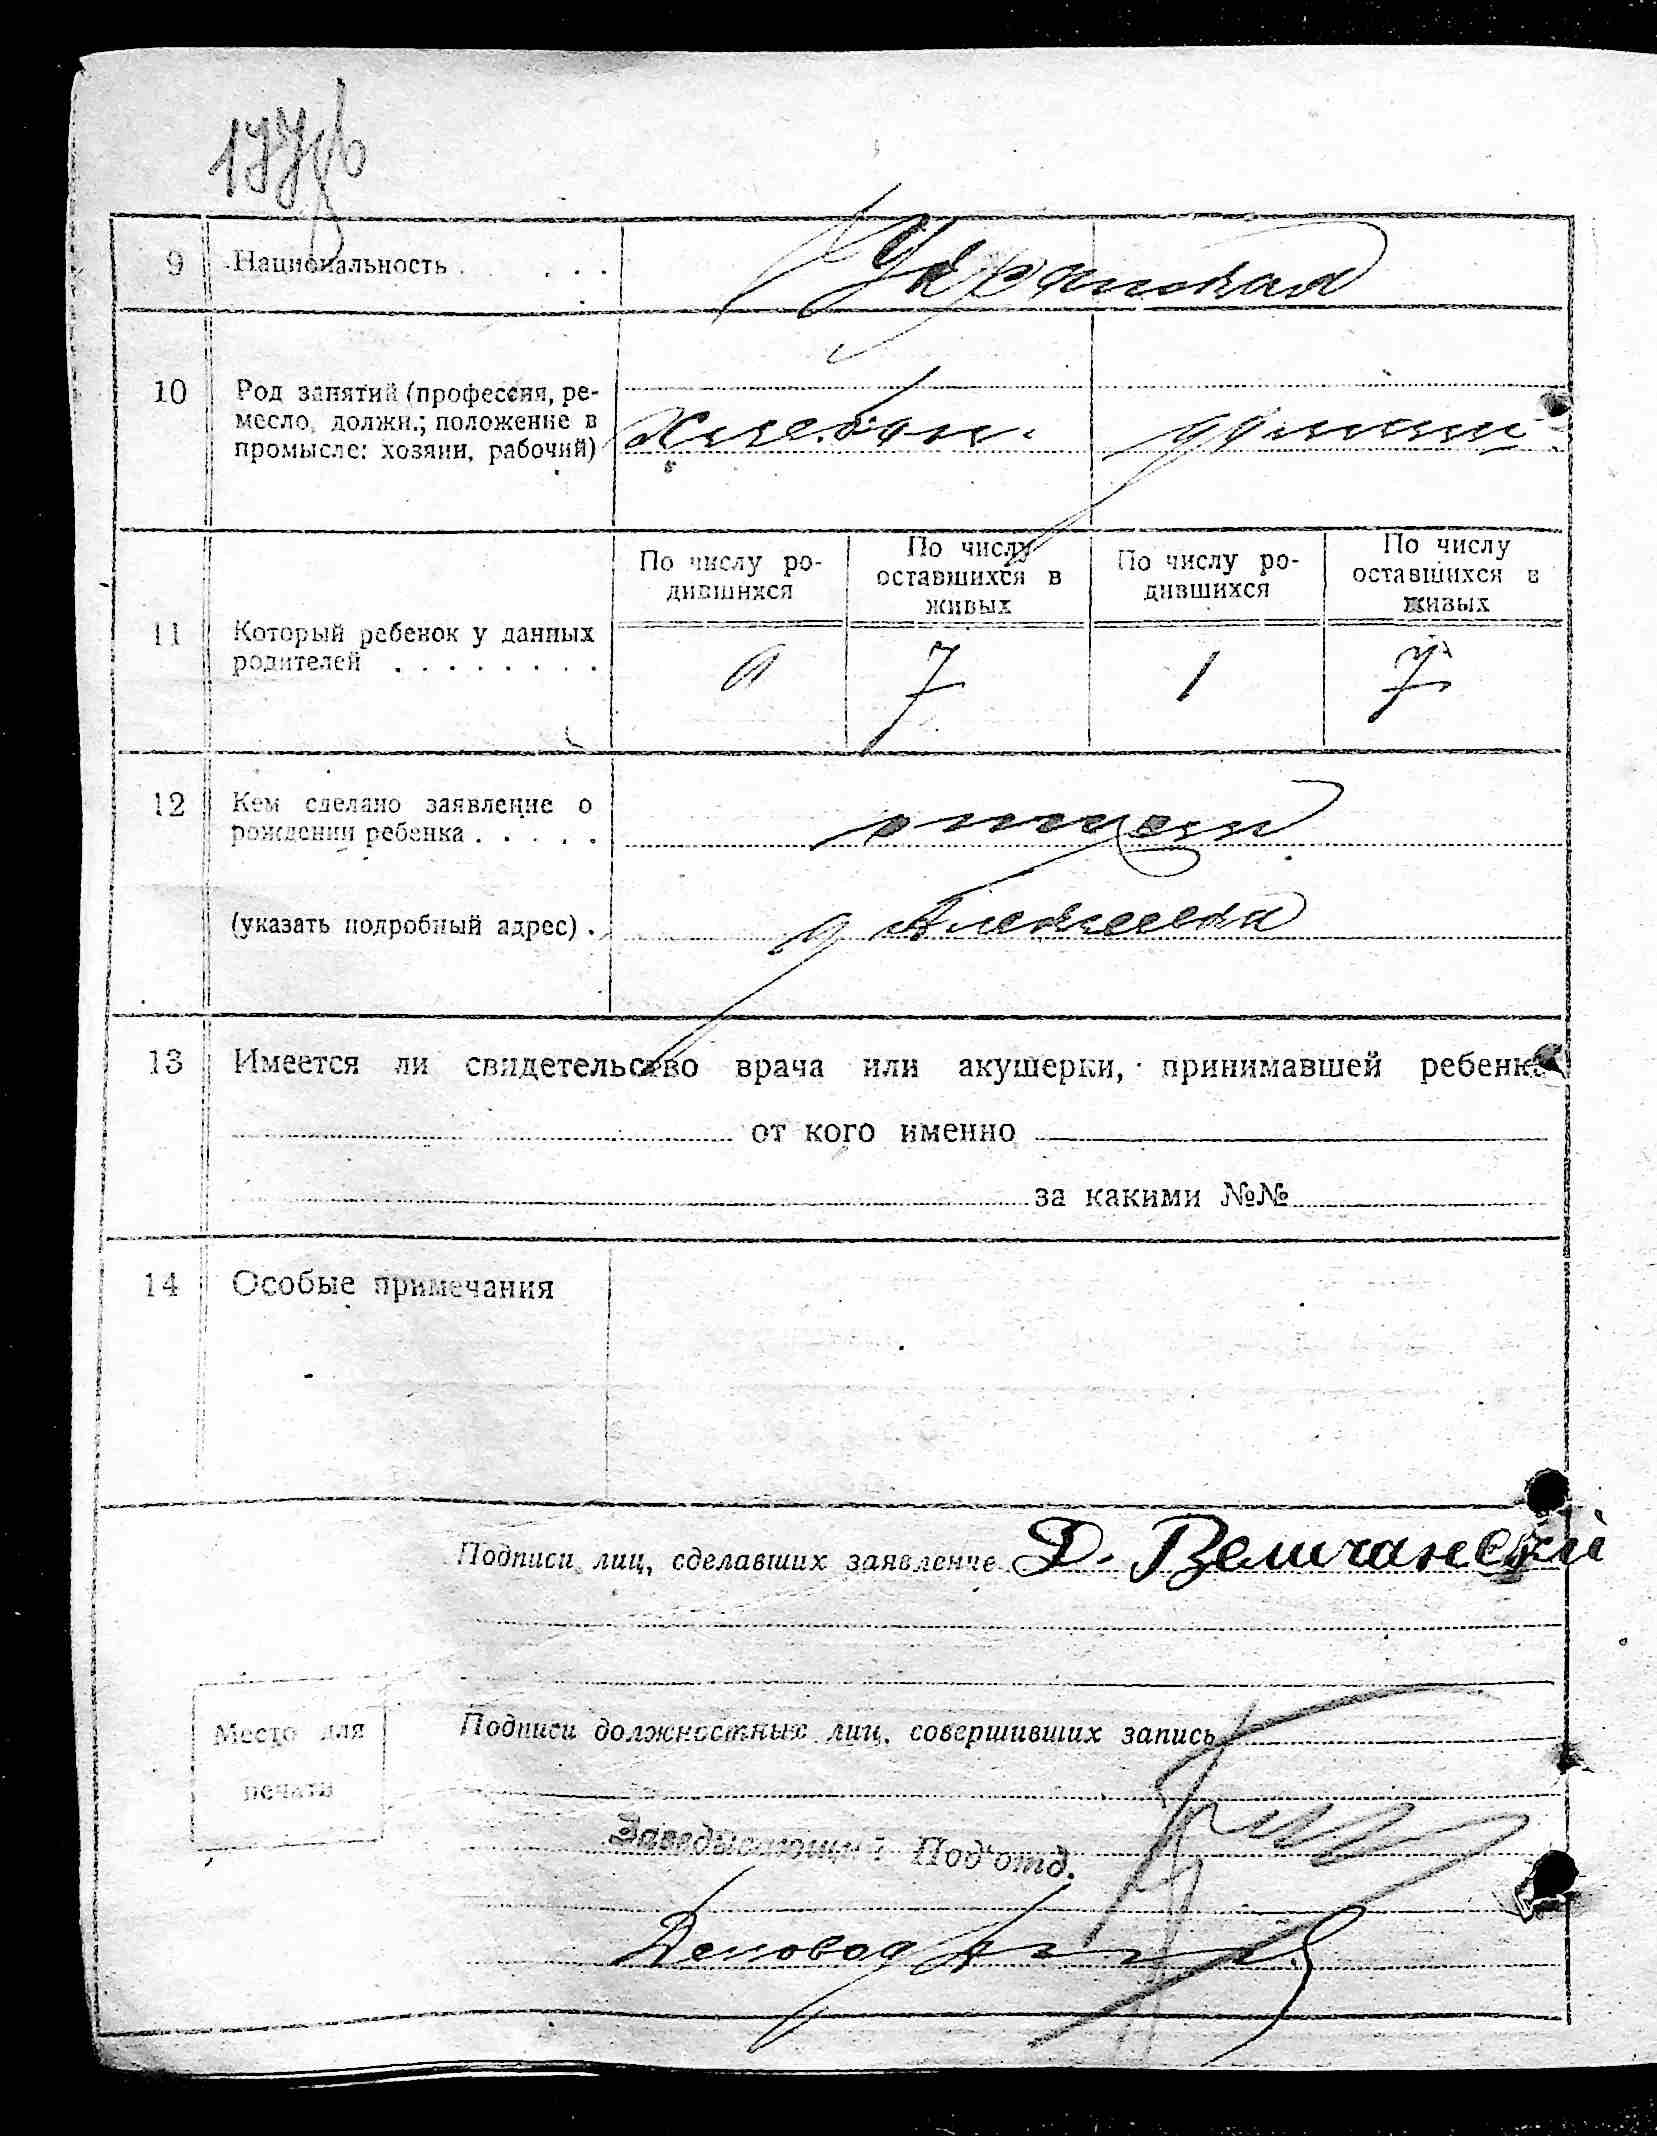 177об
9 Национальность . . . . Украинская
10 Род занятий (профессия, ре-
месло, должн.; положение в
промысле: хозяин, рабочий)
хлебоп. домаш.
По числу ро-
дившихся
По числу
оставшихся в
живых
По числу ро-
дившихся
По числу
оставшихся в
живых
11 Который ребенок у данных
родителей . . . . . . . .
7 1 7
12 Кем сделано заявление о
рождении ребенка . . . . .
отцем
(указать подробный адрес) . д Алексеевка
13 Имеется ли свидетельство врача или акушерки, принимавшей ребенка
от кого именно
за какими №№
14 Особые примечания
Подписи лиц, сделавших заявление Д. Величанский
Подписи должностных лиц, совершивших запись
Место для
печати
Заведывающий Под'отд.
Деловод